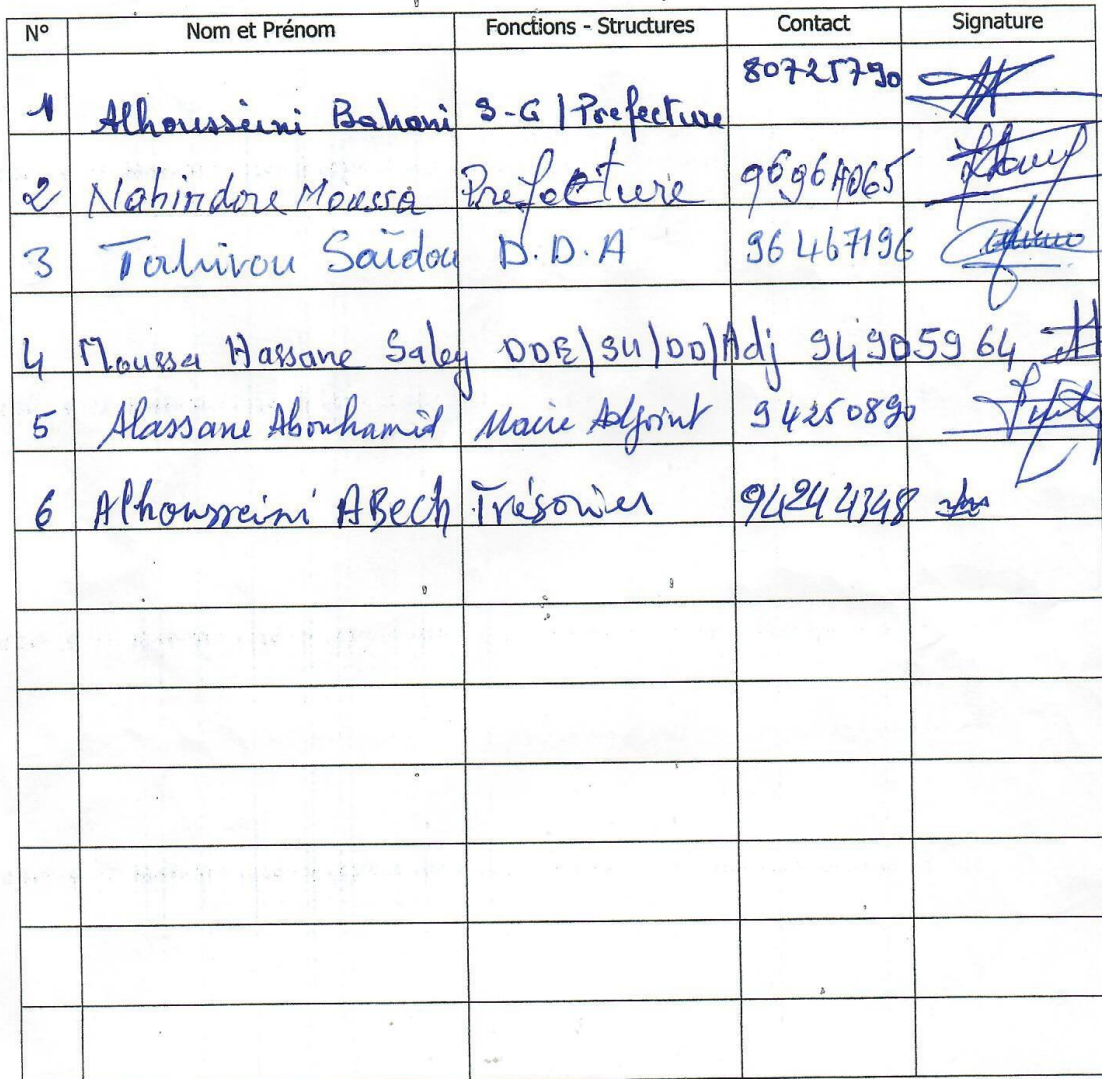 N° Nom et Prénom Fonctions - Structures Contact Signature
1 Alhousseini Bahani S-G | Prefecture 80725790
2 Nahindore Moussa Prefecture 96964065
3 Tahirou Saïdou D.D.A 96467196
4 Moussa Hassane Saley DDE/SU/DD/Adj 94905964
5 Alassane Abouhamid Maire Adjoint 94250890
6 Alhousseini ABech Trésorier 94244348